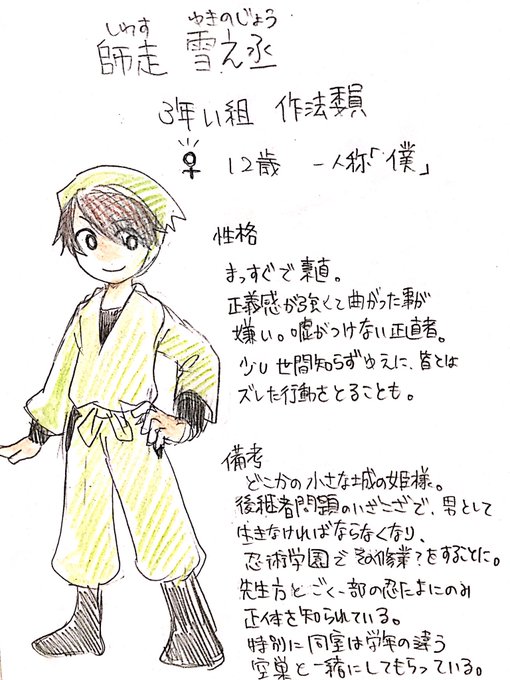 しわす ゆきのじょう
師走 雪之丞
3年い組 作法委員
♀ 12歳 一人称「僕」
性格
まっすぐで素直。
正義感が強くて曲がった事が
嫌い。嘘がつけない正直者。
少し世間知らずゆえに、皆とは
ズレた行動をとることも。
備考
どこかの小さな城の姫様。
後継者問題のいざこざで、男として
生きなければならなくなり、
忍術学園でその修業?をすることに。
先生方とごく一部の忍たまにのみ
正体を知られている。
特別に同室は学年の違う
空巣と一緒にしてもらっている。